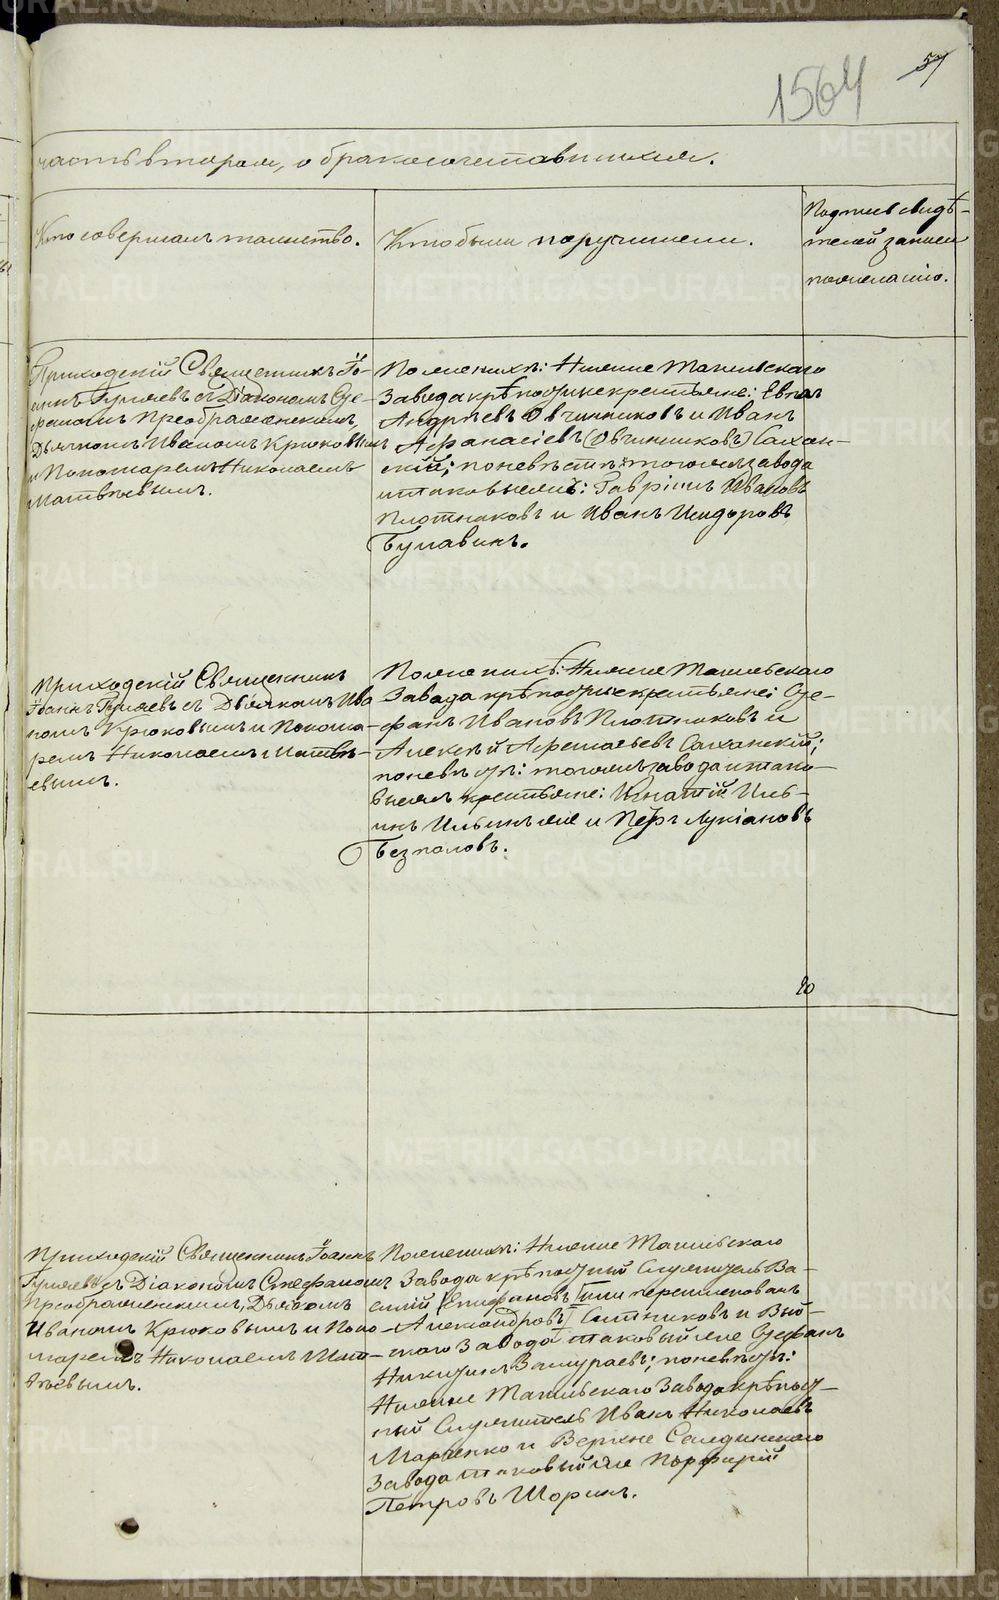 57
1564
часть вторая, о бракосочетавшихся.
Кто совершал таинство.
Кто были поручители.
Подпись свидѣ-
телей записи
по желанію.
Приходскій Священникъ Іо-
аннъ Гуляевъ съ Діакономъ Сте-
фаномъ Преображенскимъ,
Дьячкомъ Иваномъ Крюковымъ
и Пономаремъ Николаемъ
Матвѣевымъ.
По женихѣ: Нижне Тагильскаго
Завода крѣпостные крестьяне:
Андреевъ Овчинниковъ и Иванъ
Афанасіевъ (Овчинниковъ)
по невѣстѣ: тогоже завода
и таковыежъ: Гавріилъ Ивановъ
Плотниковъ и Иванъ Исидоровъ
Булавинъ.
Приходскій Священникъ
Іоаннъ Гуляевъ съ Дьячкомъ Ива
номъ Крюковымъ и Понома-
ремъ Николаемъ Матвѣ-
евымъ.
По женихѣ: Нижне Тагильскаго
Завода крѣпостные крестьяне: Сте-
фанъ Ивановъ Плотниковъ и
Алексѣй
по невѣстѣ: тогоже завода и тако-
выежъ крестьяне: Игнатій Иль-
инъ Ильиныхъ и Петръ Лукіановъ
Безполовъ.
Приходскій Священникъ Іоаннъ
Гуляевъ съ Діакономъ Стефаномъ
Преображенскимъ, Дьячкомъ
Иваномъ Крюковымъ и Поно-
маремъ Николаемъ Мат-
вѣевымъ.
По женихѣ: Нижне Тагильскаго
Завода крѣпостный Служитель Ва-
силій (Епифановъ)
Александровъ Ситниковъ и Вый-
скаго Завода таковый же Стефанъ
Никитинъ по невѣстѣ:
Нижне Тагильскаго Завода крѣпост-
ный Служитель Иванъ Николаевъ
Маренко и Верхне Салдинскаго
Завода таковый же Порфирій
Петровъ Шоринъ.
METRIKI.GASO-URAL.RU